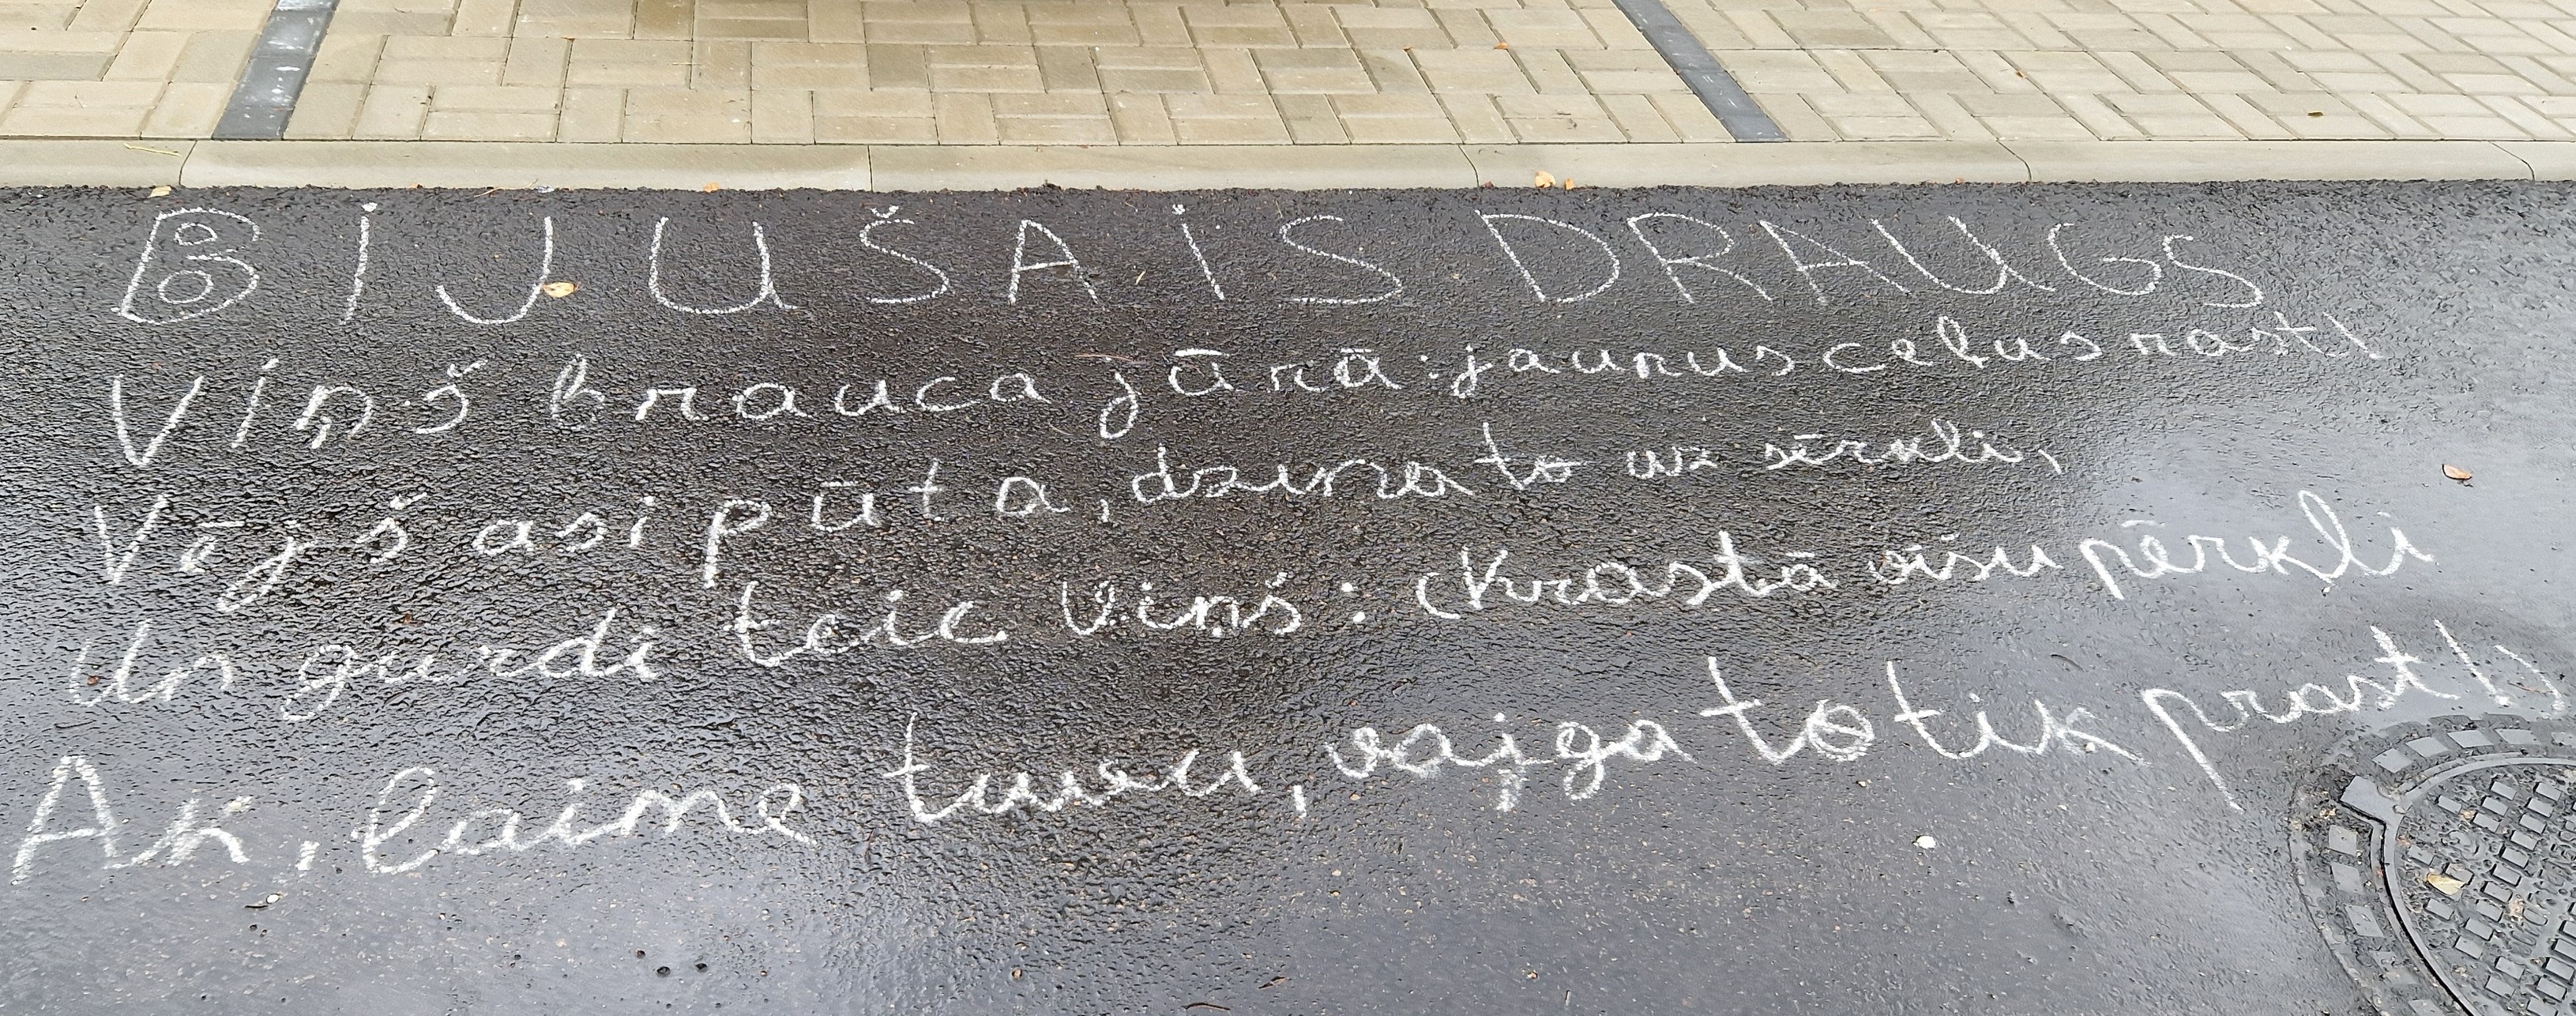 BIJUŠAIS DRAUGS
Viņš brauca jūrā: jaunus ceļus rast!
Vējš asi pūta, dzina to uz sērkli,
Un gurdi teic Viņš: (Krastā visu pērkli
Ak, laime tuvu, vajga to tik prast!)